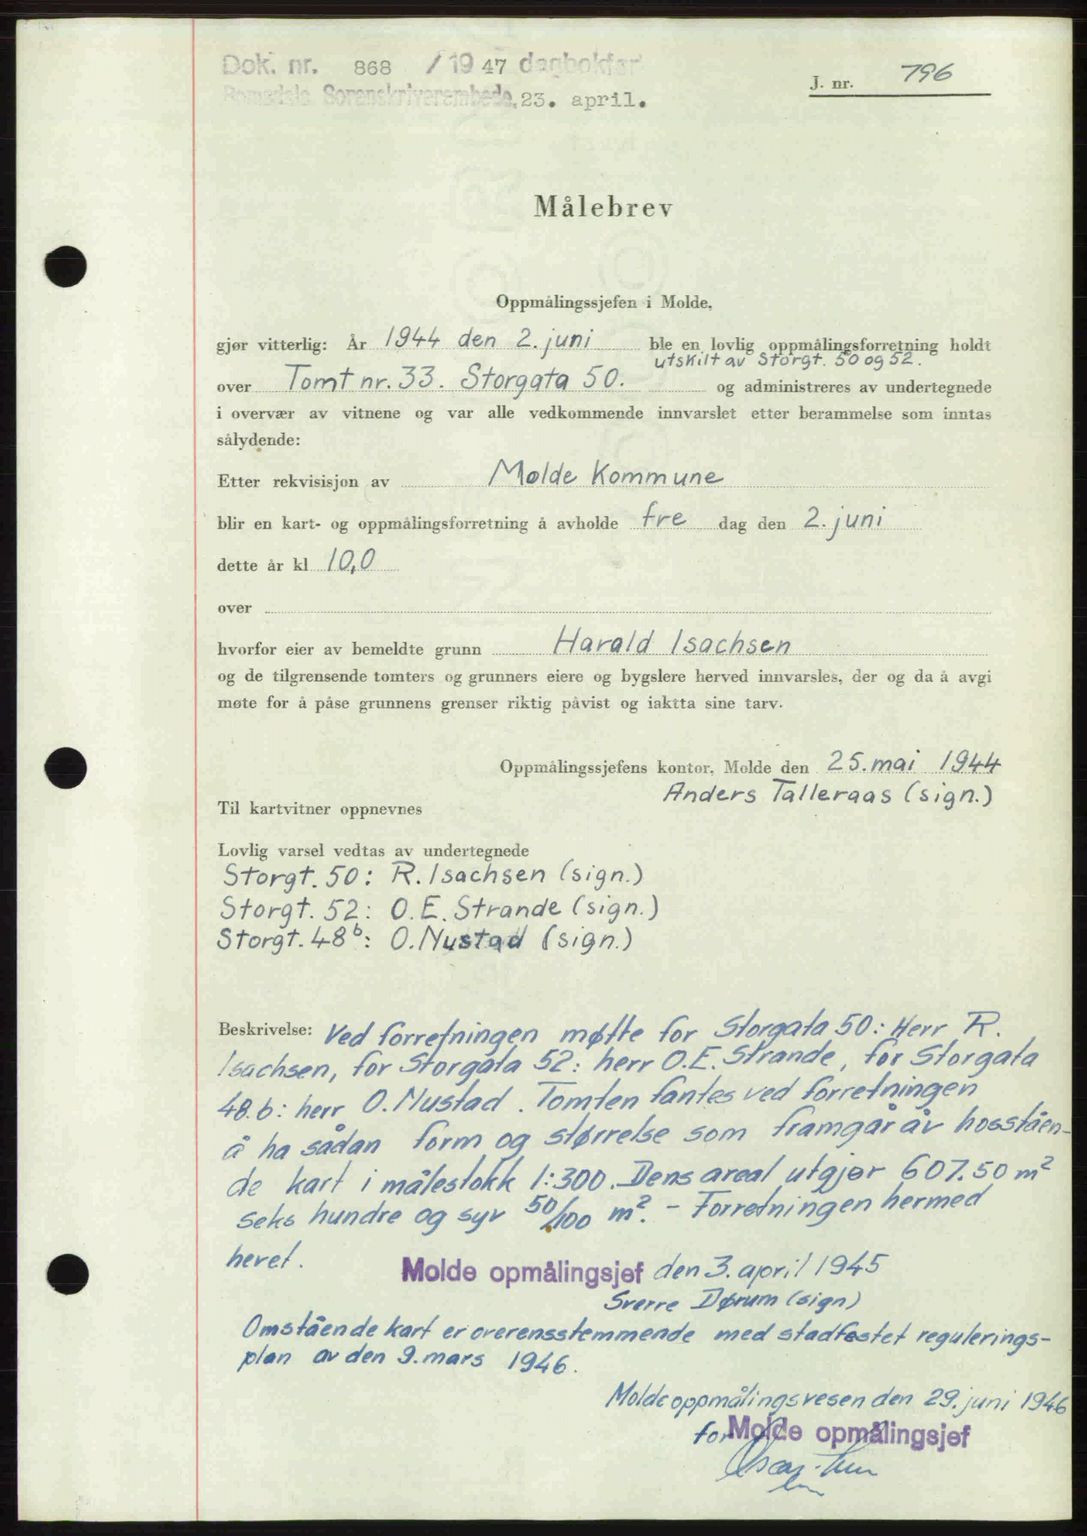 Dok. nr. 868 / 19 47 dagbokført
Romsdals Sorenskriverembede, 23. april.
J. nr. 796
Målebrev
Oppmålingssjefen i Molde,
gjør vitterlig: År 1944 den 2. juni ble en lovlig oppmålingsforretning holdt
utskilt av Storgt. 50 og 52.
over Tomt nr. 33. Storgata 50. og administreres av undertegnede
i overvær av vitnene og var alle vedkommende innvarslet etter berammelse som inntas
sålydende:
Etter rekvisisjon av Molde Kommune
blir en kart- og oppmålingsforretning å avholde fre dag den 2. juni
dette år kl 10,0
over
hvorfor eier av bemeldte grunn Harald Isachsen
og de tilgrensende tomters og grunners eiere og bygslere herved innvarsles, der og da å avgi
møte for å påse grunnens grenser riktig påvist og iaktta sine tarv.
Oppmålingssjefens kontor, Molde den 25. mai 1944
Anders Talleraas (sign.)
Til kartvitner oppnevnes
Lovlig varsel vedtas av undertegnede
Storgt. 50: R. Isachsen (sign.)
Storgt. 52: O. E. Strande (sign.)
Storgt. 48b: O. Nustad (sign.)
Beskrivelse: Ved forretningen møtte for Storgata 50: Herr R.
Isachsen, for Storgata 52: herr O.E. Strande, for Storgata
48.b: herr O. Nustad. Tomten fantes ved forretningen
å ha sådan form og størrelse som framgår av hosståen-
de kart i målestokk 1:300. Dens areal utgjør 607.50 m²
seks hundre og syv 50/100 m². - Forretningen hermed
hevet.
Molde opmålingsjef den 3. april 1945
Sverre Dørum (sign)
Omstående kart er overensstemmende med stadfestet regulerings-
plan av den 9. mars 1946.
Molde oppmålingsvesen den 29. juni 1946
for Molde opmålingsjef